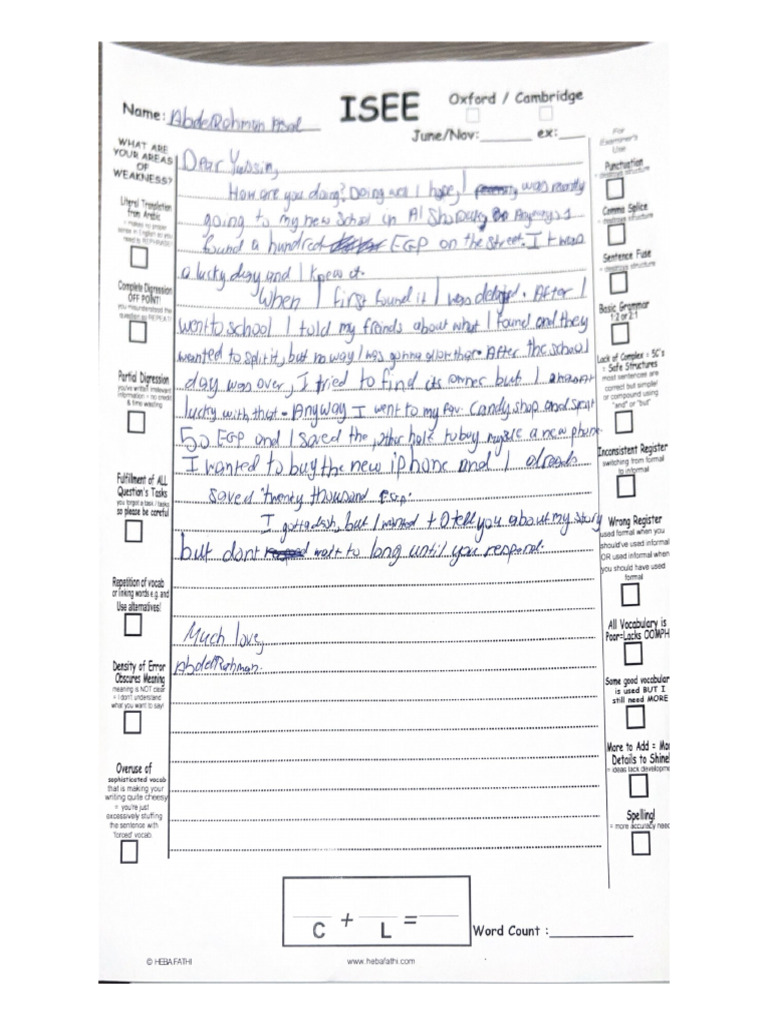 ISEE
Oxford / Cambridge
Name: AbdelRahman Asal
June/Nov: ex:
For Examiner's Use
WHAT ARE YOUR AREAS OF WEAKNESS?
Dear Yassin,
How are you doing? Doing well I hope, I was recently
going to my new School in Al Shorouk, Anyways I
found a hundred EGP on the street. I t was
a lucky day and I knew it.
When I first found it I was . After I
went to school I told my friends about what I found and they
wanted to split it, but no way I was gonna that. After the school
day was over, I tried to find its owner but I
lucky with that. Anyway I went to my fav. Candy shop and
50 EGP and I saved the other half to buy myself a new phone
I wanted to buy the new iPhone and I already
saved twenty thousand
I gotta dash, but I wanted to tell you about my story
but dont wait to long until you respond.
Much love,
AbdelRahman.
Literal Translation from Arabic
Complete Digression OFF POINT!
Partial Digression
Fulfillment of ALL Question's Tasks
so please be careful
Repetition of vocab
or linking words e.g. and
Use alternatives!
Density of Error Obscures Meaning
meaning is NOT clear
= I don't understand
what you want to say!
Overuse of
sophisticated vocab
that is making your
writing quite cheesy
= you're just
excessively stuffing
the sentence with
'forced' vocab
Punctuation
= destroys structure
Comma Splice
= destroys structure
Sentence Fuse
= destroys structure
Basic Grammar
1:2 or 2:1
Lack of Complex = SC's
= Safe Structures
most sentences are
correct but simple/
or compound using
"and" or "but"
Inconsistent Register
switching from formal
to informal
Wrong Register
used formal when you
should've used informal
OR used informal when
you should have used
formal
All Vocabulary is
Poor=Lacks OOMPH
Some good vocabular
is used BUT I
still need MORE
More to Add = Mo
Details to Shine!
= ideas lack developme
Spelling!
= more accuracy need
C + L =
Word Count :
© HEBA FATHI
www.hebafathi.com